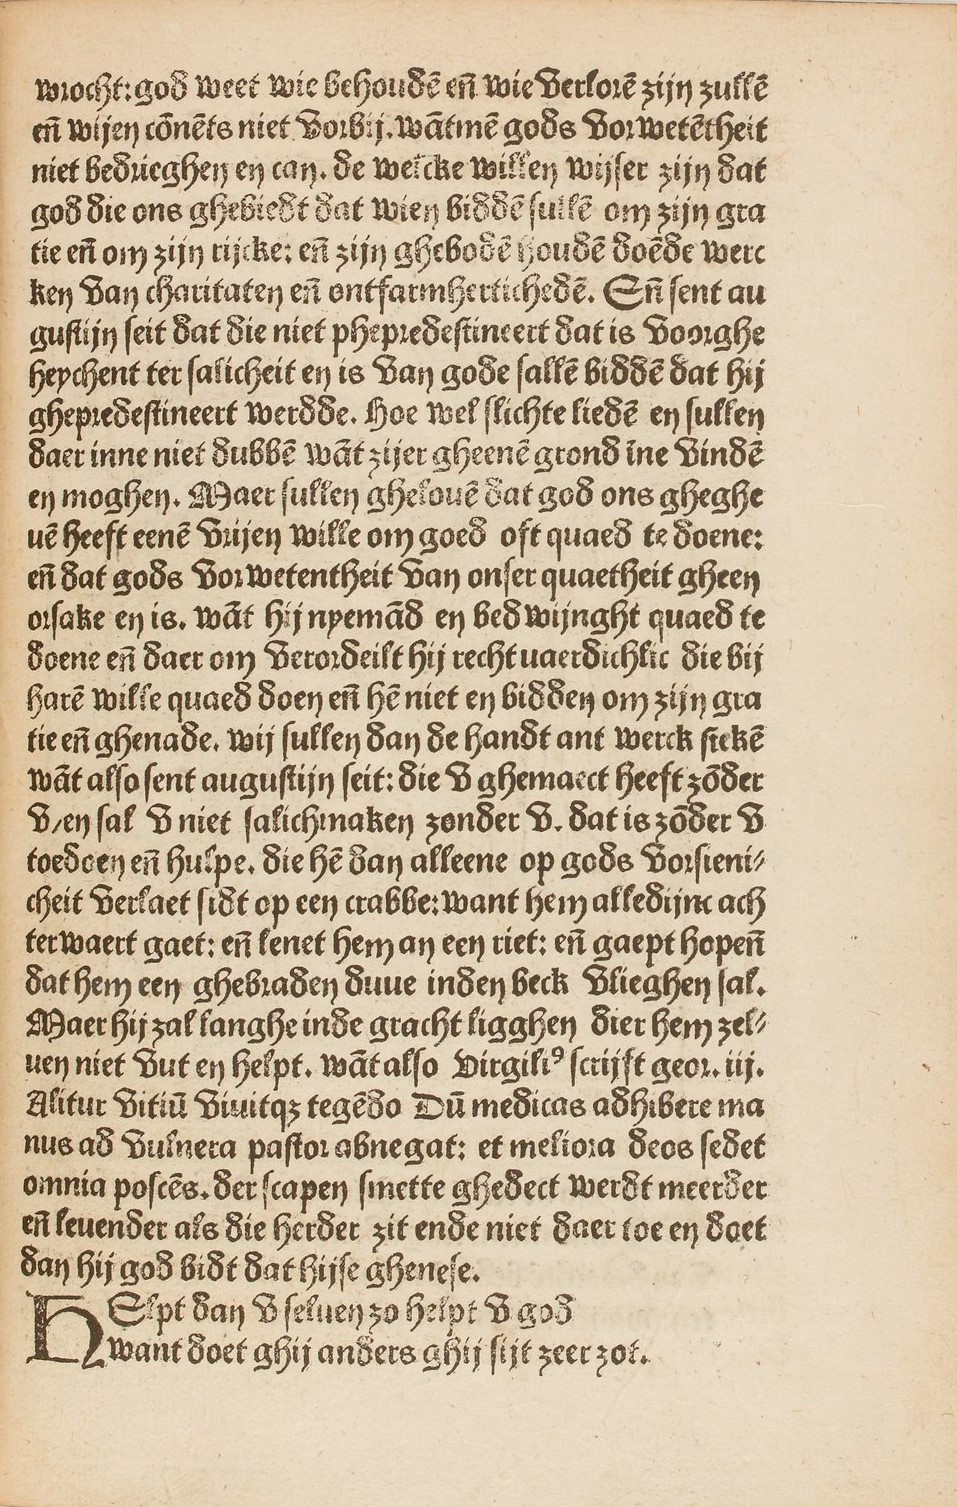 wrocht: god weet wie behoudē eñ wie verlorē zijn zullē
eñ wijen cōnēts niet vorbij. wātmē gods vorwetētheit
niet bedrieghen en can. de welcke willen wijser zijn dat
god die ons ghebiedt dat wien biddē sullē om zijn gra
tie eñ om zijn rijcke: eñ zijn ghebodē houdē doēde werc
ken van charitaten eñ ontfarmhertichedē. Eñ sent au
gustijn seit dat die niet phepredestineert dat is voorghe
heychent ter salicheit en is van gode sallē biddē dat hij
ghepredestineert werdde. Hoe wel slichte liedē en sullen
daer inne niet dubbē wāt zijer gheenē grond īne vindē
en moghen. Maer sullen ghelouē dat god ons gheghe
uē heeft eenē vrijen wille om goed oft quaed te doene:
eñ dat gods vorwetentheit van onser quaetheit gheen
orsake en is. wāt hij nyemād en bedwijnght quaed te
doene eñ daer om verordeilt hij recht uaerdichlic die bij
harē wille quaed doen eñ hē niet en bidden om zijn gra
tie eñ ghenade. wij sullen dan de handt ant werck stekē
wāt also sent augustijn seit: die v ghemaect heeft zōder
v/en sal v niet salichmaken zonder v. dat is zōder v
toedoen eñ hulpe. die hē dan alleene op gods vorsieni⸗
cheit verlaet sidt op een crabbe: want hem alledijnc ach
terwaert gaet: eñ lenet hem an een riet: eñ gaept hopeñ
dat hem een ghebraden duue inden beck vlieghen sal.
Maer hij zal langhe inde gracht ligghen dier hem zel⸗
uen niet vut en helpt. wāt also Virgiliꝰ scrijft geor. iij.
Alitur vitiū viuitqꝫ tegēdo Dū medicas adhibere ma
nus ad vulnera pastor abnegat: et meliora deos sedet
omnia poscēs. der scapen smette ghedect werdt meerder
eñ leuender als die herder zit ende niet daer toe en doet
dan hij god bidt dat hijse ghenese.
HElpt dan v seluen zo helpt v god
want doet ghij anders ghij sijt zeer zot.